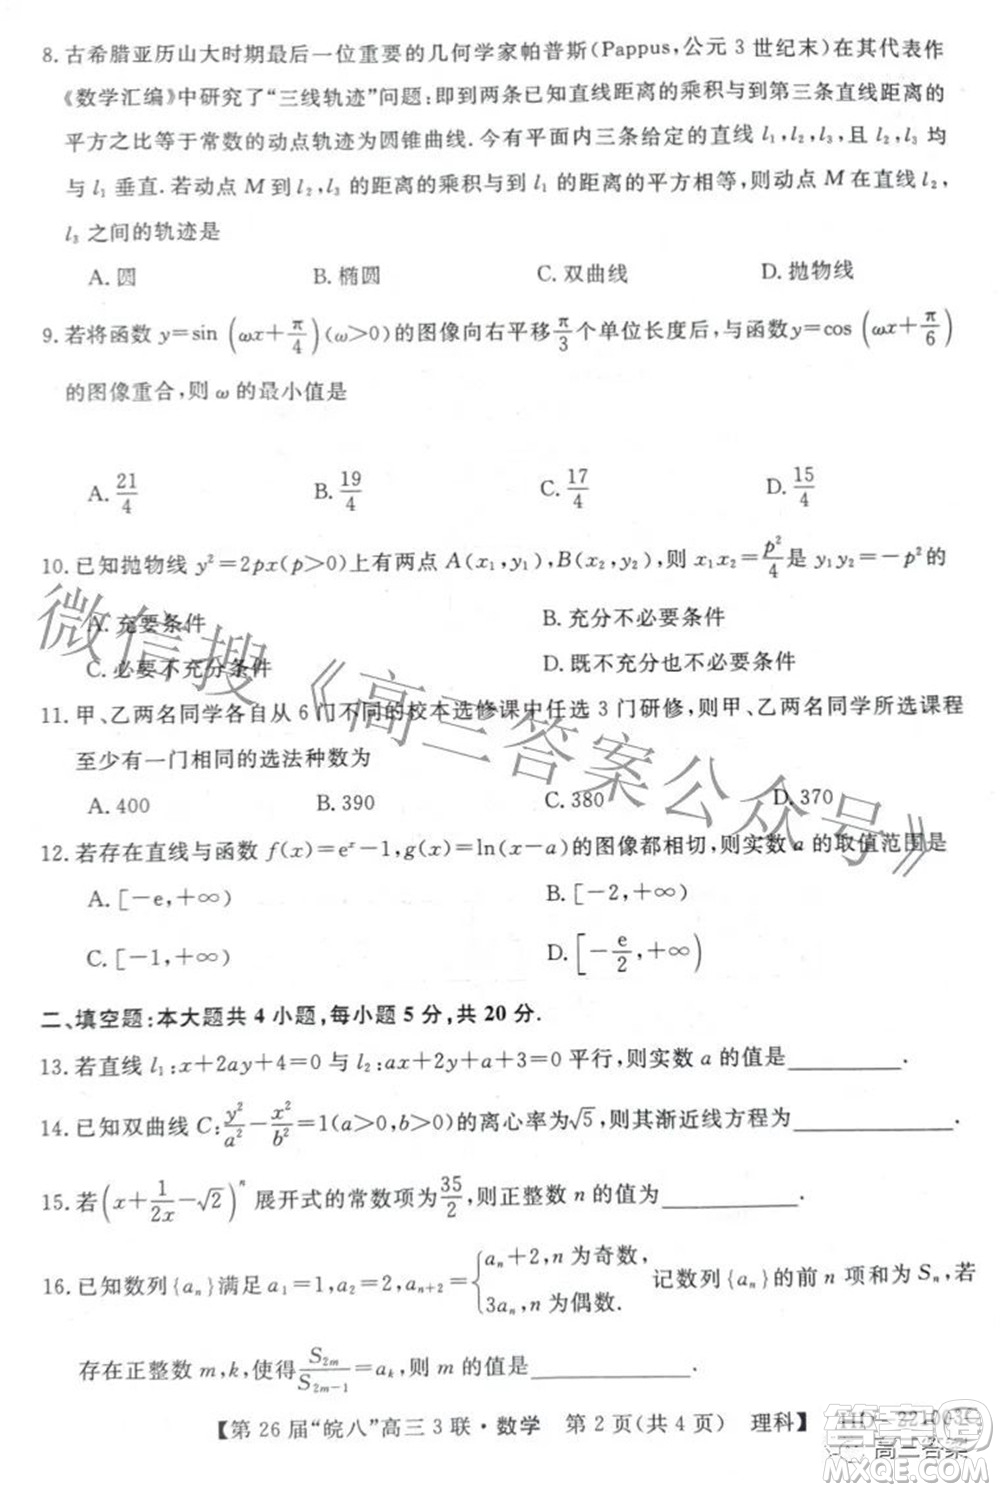 8. 古希腊亚历山大时期最后一位重要的几何学家帕普斯(Pappus,公元 3 世纪末)在其代表作
《数学汇编》中研究了“三线轨迹”问题:即到两条已知直线距离的乘积与到第三条直线距离的
平方之比等于常数的动点轨迹为圆锥曲线. 今有平面内三条给定的直线 l₁,l₂,l₃,且 l₂,l₃ 均
与 l₁ 垂直. 若动点 M 到 l₂,l₃ 的距离的乘积与到 l₁ 的距离的平方相等,则动点 M 在直线 l₂,
l₃ 之间的轨迹是
A. 圆 B. 椭圆 C. 双曲线 D. 抛物线
9. 若将函数 y=sin(ωx+π/4)(ω>0)的图像向右平移π/3个单位长度后,与函数y=cos(ωx+π/6)
的图像重合,则 ω 的最小值是
A. 21/4 B. 19/4 C. 17/4 D. 15/4
10. 已知抛物线 y²=2px(p>0)上有两点 A(x₁,y₁),B(x₂,y₂),则 x₁x₂=p²/4是 y₁y₂=-p²的
A. 充要条件 B. 充分不必要条件
C. 必要不充分条件 D. 既不充分也不必要条件
11. 甲、乙两名同学各自从 6 门不同的校本选修课中任选 3 门研修,则甲、乙两名同学所选课程
至少有一门相同的选法种数为
A. 400 B. 390 C. 380 D. 370
12. 若存在直线与函数 f(x)=eˣ-1,g(x)=ln(x-a)的图像都相切,则实数 a 的取值范围是
A. [-e,+∞) B. [-2,+∞)
C. [-1,+∞) D. [-e/2,+∞)
二、填空题:本大题共 4 小题,每小题 5 分,共 20 分.
13. 若直线 l₁:x+2ay+4=0 与 l₂:ax+2y+a+3=0 平行,则实数 a 的值是________.
14. 已知双曲线 C:y²/a²-x²/b²=1(a>0,b>0)的离心率为√5,则其渐近线方程为________.
15. 若(x+1/2x-√2)ⁿ展开式的常数项为35/2,则正整数 n 的值为________.
16. 已知数列{aₙ}满足 a₁=1,a₂=2,aₙ₊₂={aₙ+2,n 为奇数, 3aₙ,n 为偶数. 记数列{aₙ}的前 n 项和为 Sₙ,若
存在正整数 m,k,使得S₂ₘ/S₂ₘ₋₁=aₖ,则 m 的值是________.
【第 26 届“皖八”高三 3 联·数学 第 2 页(共 4 页) 理科】
微信搜《高三答案公众号》
高三答案
答案圈
MXQE.COM